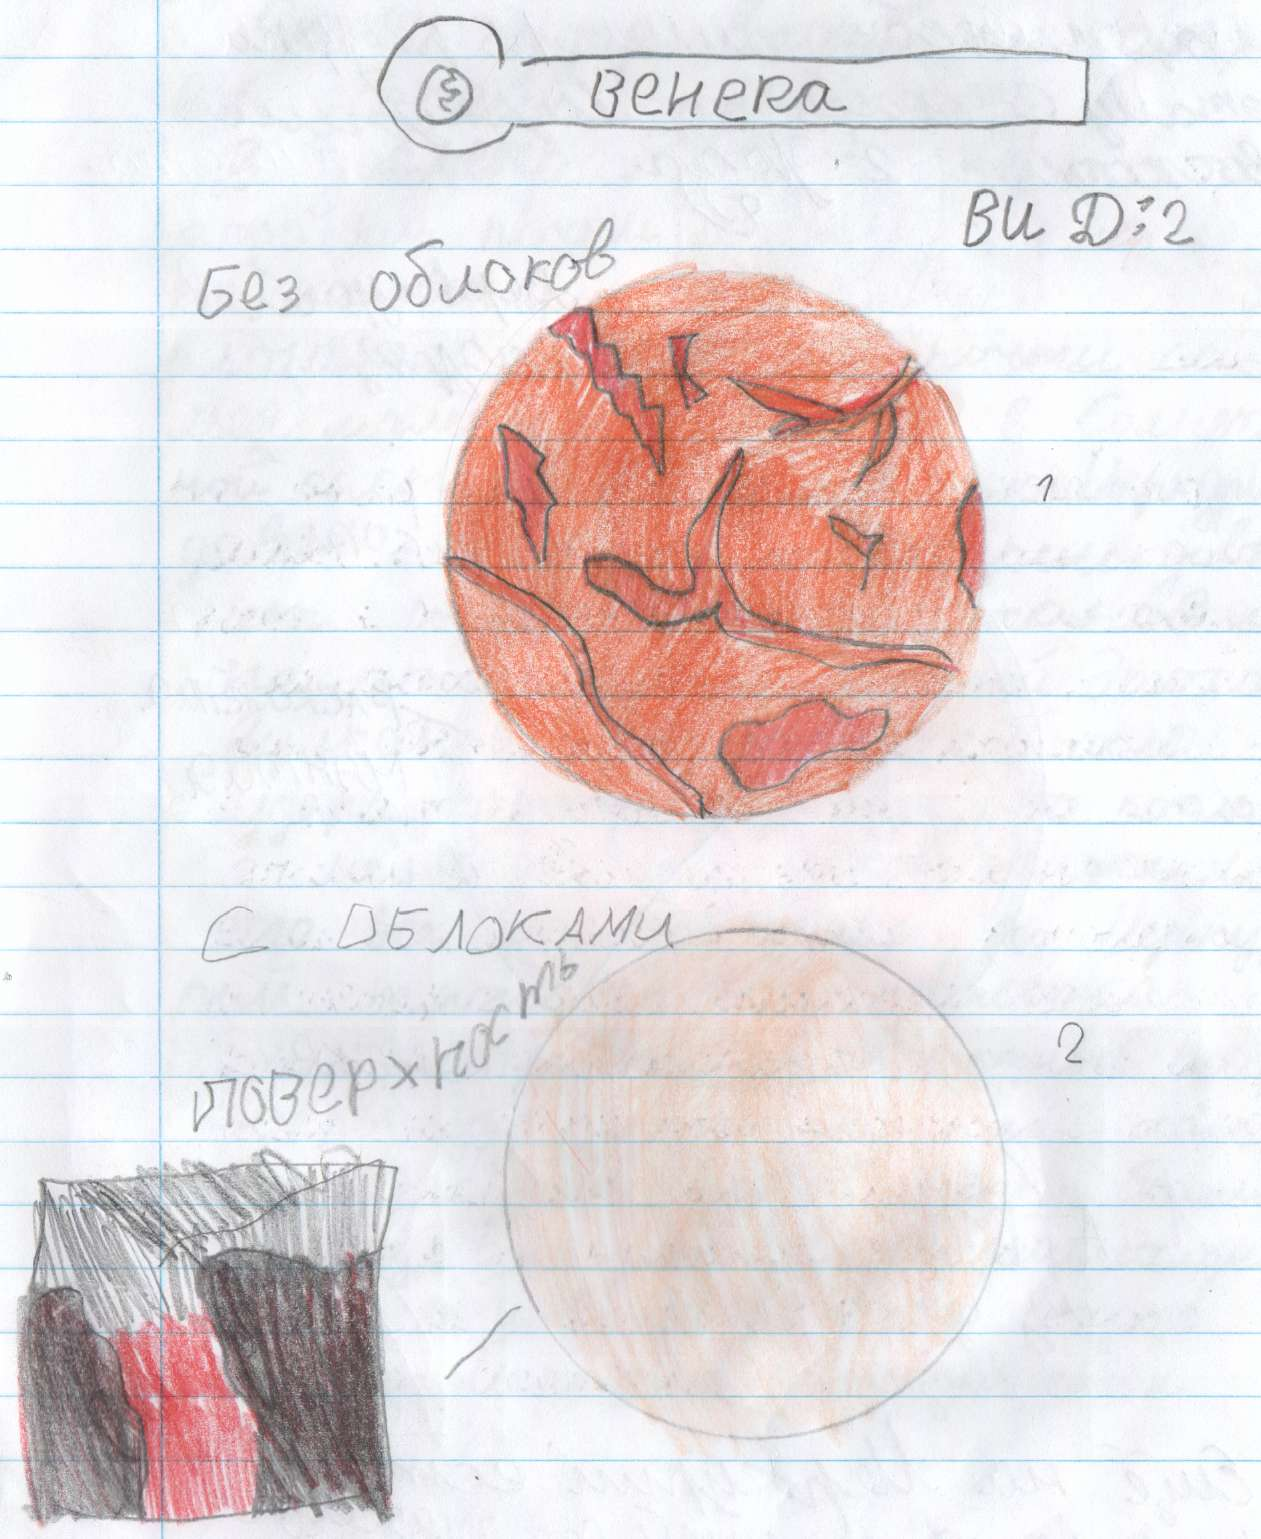 Венера
ВИД:2
Без облоков
1
С ОБЛОКАМИ
поверхность
2